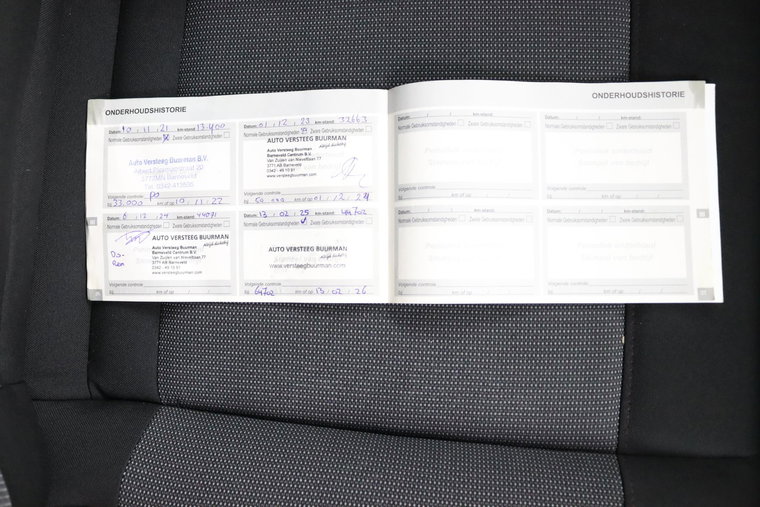 ONDERHOUDSHISTORIE
Datum: 10 / 11 / 21 km-stand: 13.400
Normale Gebruiksomstandigheden Zware Gebruiksomstandigheden
Auto Versteeg Buurman B.V.
3772MN Barneveld
Tel. 0342-412635
Volgende controle
bij 33.000 km of op 10 / 11 / 22
Datum: 01 / 12 / 23 km-stand: 32663
Normale Gebruiksomstandigheden Zware Gebruiksomstandigheden
AUTO VERSTEEG BUURMAN
Auto Versteeg Buurman
Barneveld Centrum B.V.
Van Zuilen van Nieveltlaan 77
3771 AB Barneveld
0342 - 49 10 51
www.versteegbuurman.com
Volgende controle
bij km of op 01 / 12 / 24
Datum: 6 / 12 / 24 km-stand: 44071
Normale Gebruiksomstandigheden Zware Gebruiksomstandigheden
AUTO VERSTEEG BUURMAN
Auto Versteeg Buurman
Barneveld Centrum B.V.
Van Zuilen van Nieveltlaan 77
3771 AB Barneveld
0342 - 49 10 51
www.versteegbuurman.com
Volgende controle
bij km of op / /
Datum: 13 / 02 / 25 km-stand:
Normale Gebruiksomstandigheden Zware Gebruiksomstandigheden
AUTO VERSTEEG BUURMAN
www.versteegbuurman.com
Volgende controle
bij 64702 km of op 13 / 02 / 26
ONDERHOUDSHISTORIE
Datum: / / km-stand:
Normale Gebruiksomstandigheden Zware Gebruiksomstandigheden
Volgende controle
bij km of op / /
Datum: / / km-stand:
Normale Gebruiksomstandigheden Zware Gebruiksomstandigheden
Volgende controle
bij km of op / /
Datum: / / km-stand:
Normale Gebruiksomstandigheden Zware Gebruiksomstandigheden
Volgende controle
bij km of op / /
Datum: / / km-stand:
Normale Gebruiksomstandigheden Zware Gebruiksomstandigheden
Volgende controle
bij km of op / /